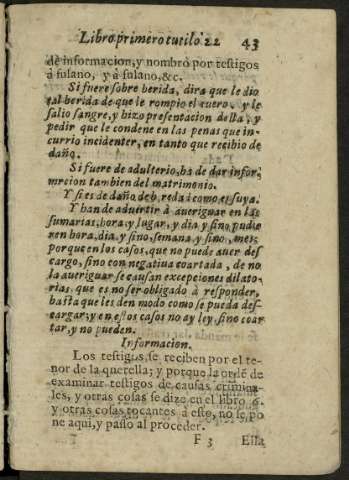 Libro primero tutilo 22 43
de informacion, y nombrò por testigos
à fulano, y à fulano, &c.
Si fuere sobre herida, dira que le dio
tal herida de que le rompio el cuero, y le
salio sangre, y hizo presentacion della, y
pedir que le condene en las penas que in-
currio incidenter, en tanto que recibio de
daño.
Si fuere de adulterio, ha de dar infor-
mrcion tambien del matrimonio.
Y si es de daño de heredad como es suya.
Y han de aduirtir à aueriguar en las
sumarias, hora, y lugar, y dia y sino pudie
ren hora, dia, y sino, semana y sino, mes,
porque en los casos, que no puede auer des
cargo, sino con negatiua coartada, de no
la aueriguar se causan excepciones dilato-
rias, que es no ser obligado à responder,
hasta que les den modo como se pueda des-
cargar; y en estos casos no ay ley, sino coar
tar, y no pueden.
Informacion.
Los testigos, se reciben por el te-
nor de la querella; y porque la ordẽ de
examinar testigos de causas crimina-
les, y otras cosas se dize en el libro 6.
y otras cosas tocantes à esto, no se po
ne aqui, y passo al proceder.
F 3 Esta